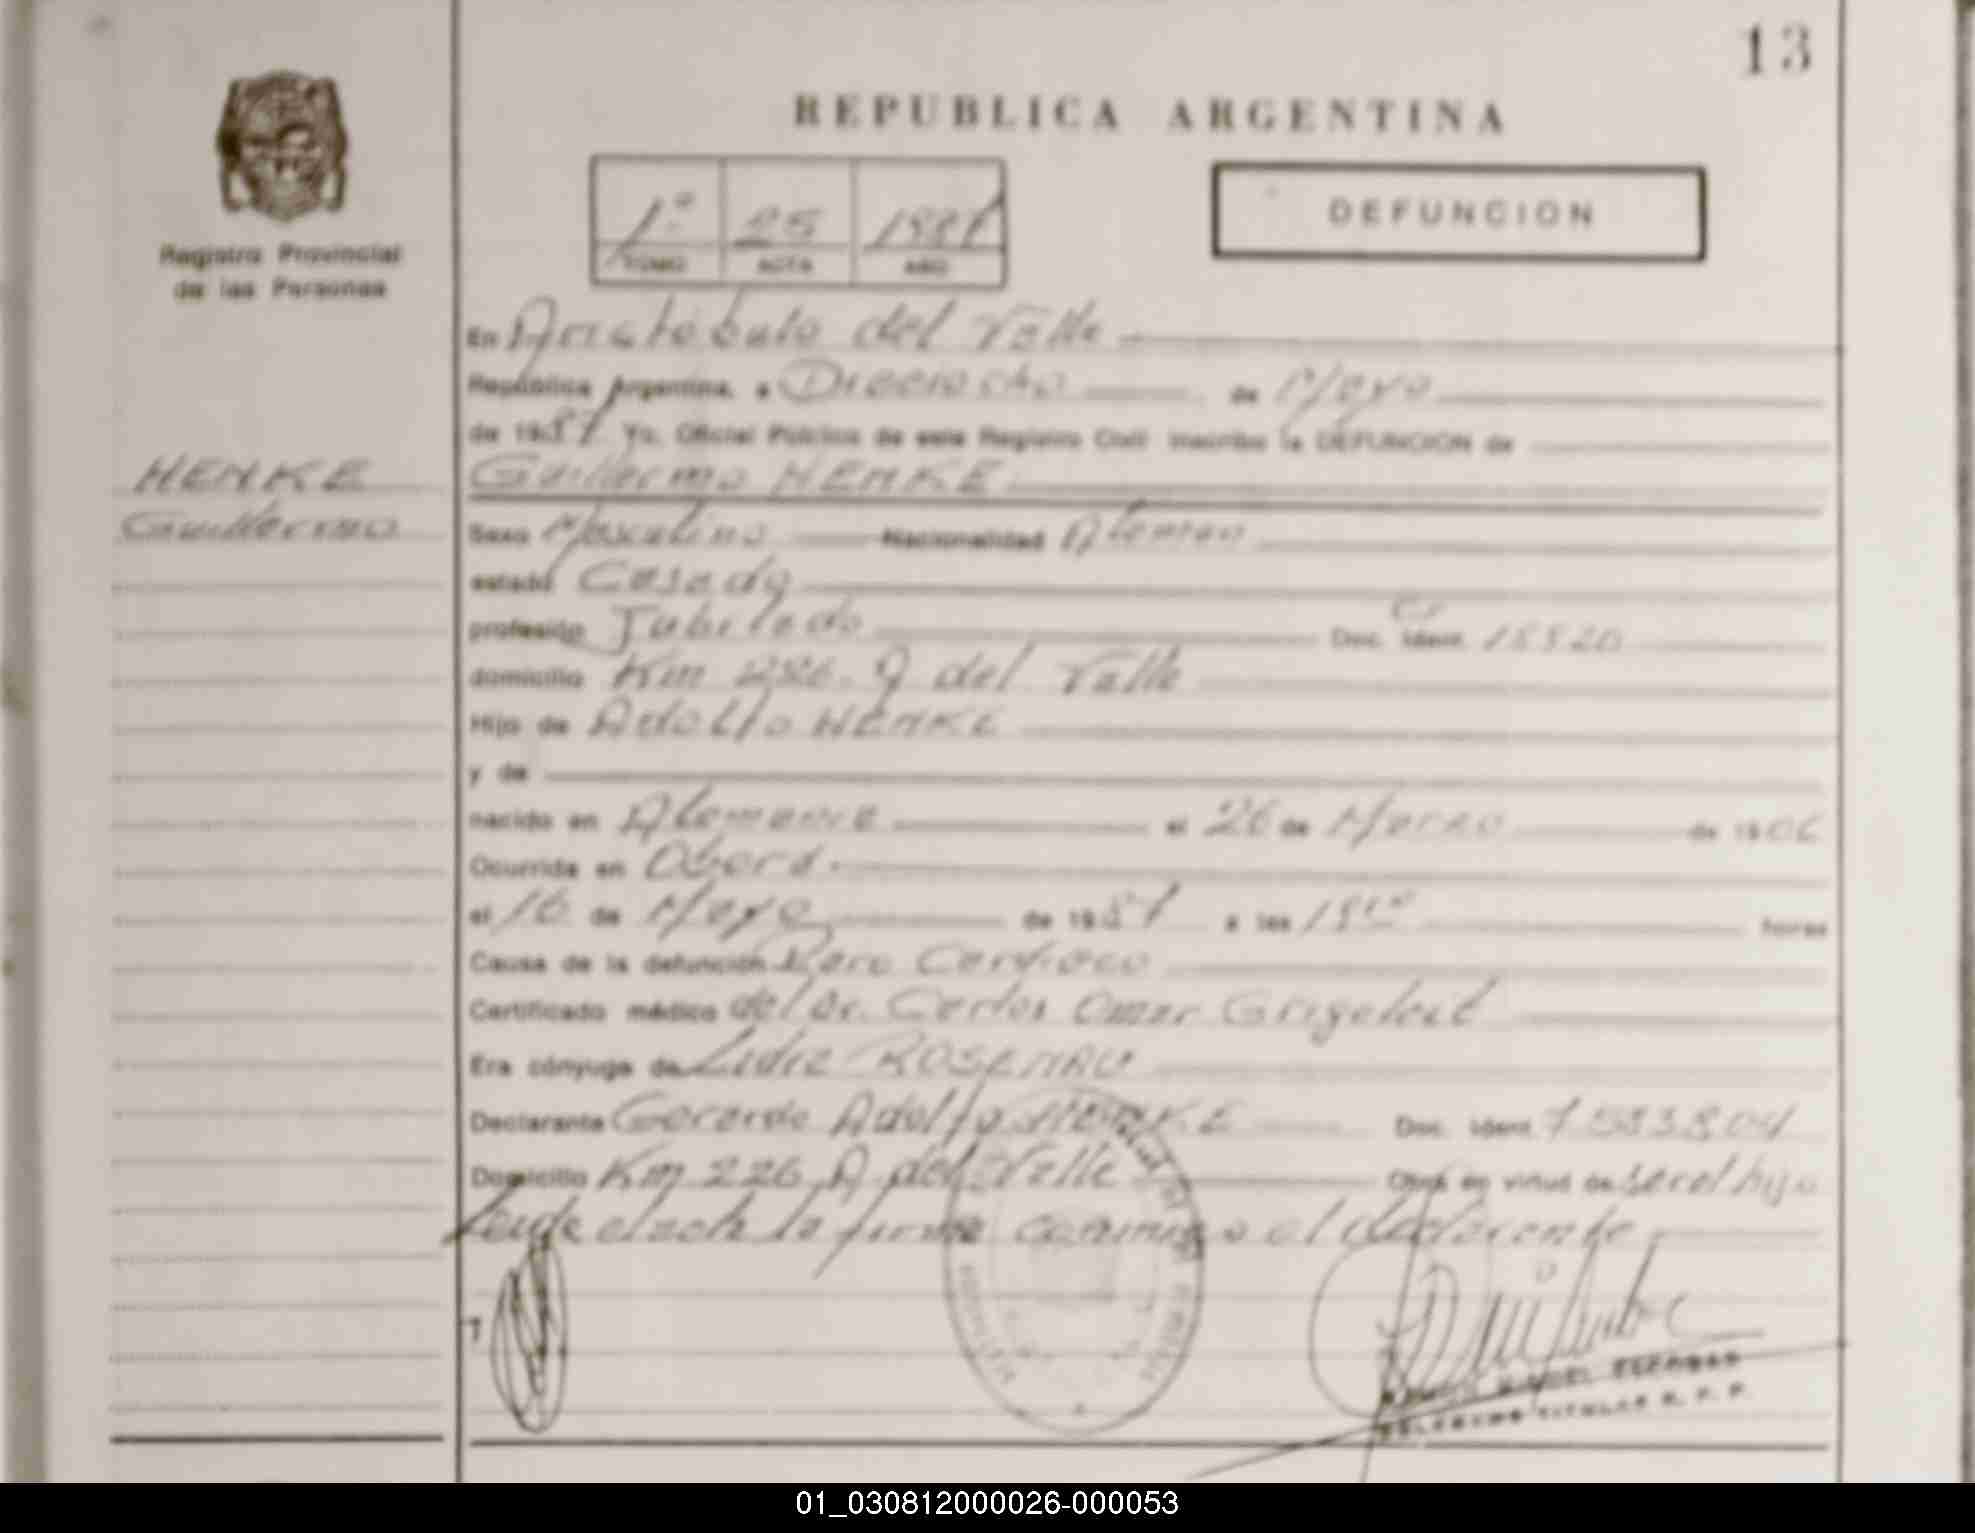 13
REPUBLICA ARGENTINA
1º 25 1987
TOMO ACTA AÑO
DEFUNCION
Registro Provincial
de las Personas
En Aristóbulo del Valle
República Argentina, a Dieciocho de Mayo
de 1987 Yo, Oficial Público de este Registro Civil inscribo la DEFUNCION de
HENKE
Guillermo HENKE
Guillermo
Sexo Masculino Nacionalidad Alemán
estado Casado
profesión Jubilado Doc. Ident.
domicilio Km 226. A del Valle
Hijo de Adolfo HENKE
y de
nacido en Alemania el 26 de Marzo de 1906
Ocurrida en Oberá.
el 16 de Mayo de 1987 a las horas
Causa de la defunción Paro Cardíaco
Certificado médico del Dr. Carlos Omar
Era cónyuge de Lidia ROSENAU
Declarante Gerardo Adolfo HENKE Doc. Ident. 7.533.804
Domicilio Km 226 A del Valle Obra en virtud de ser el hijo
Leída el acta la firma conmigo el declarante
MIGUEL ESCOBAR
DELEGADO TITULAR R. P. P.
01_030812000026-000053